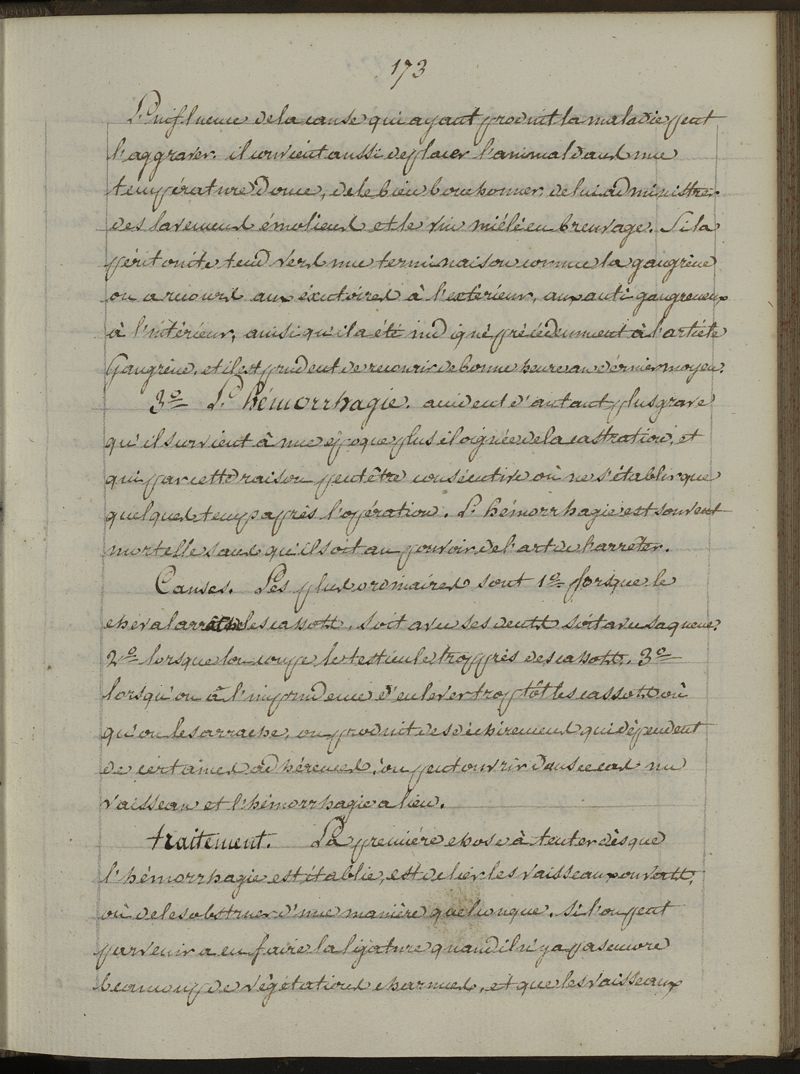 173
L'influence de la cause qui ayant produit la maladie peut
l'aggraver. il convient aussi de placer l'animal dans une
température douce, de le bien bouchonner, de lui administrer
des lavemens émolieus et le vin miélé en breuvage. Si la
péritonite tend vers une terminaison comme la gangrène
on a recours aux éxutoires à l'exterieur, aux anti gangreneux
à l'intérieur, ainsi qu'il a été indiqué précédemment à l'article
Gangrène, et il est prudent de recourir de bonne heure au dérnier moyen.
3o L'hémorrhagie. accident d'autant plus grave
qu'il survient à une époque plus éloignée de la castration, et
qui par cette raison peut être consécutive où ne s'établir que
quelques temps après l'opération. L'hémorrhagie est souvent
mortelle sans qu'il soit au pouvoir de l'art de l'arrêter.
Causes. Les plus ordinaires sont 1o lorsque le
cheval arrache les cassots, soit avec ses dents soit avec sa queue.
2o lorsque lon coupe le testicule trop près des cassots. 3o
lorsqu'on à l'imprudence d'enlever trop tôt les cassots où
qu'on les arrache, on produit des déchiremens qui dépendent
de certaines adhérences, on peut ouvrir dans ce cas un
vaisseau et l'hémorrhagie a lieu.
traitement. La première chose à tenter dès que
l'hémorrhagie est établie, est de lier les vaisseaux ouverts,
où de les obstruer d'une manière quelconque. Si l'on peut
parvenir a en faire la ligature quand il n'y a pas encore
beaucoup de végétations charnues, et que les vaisseaux